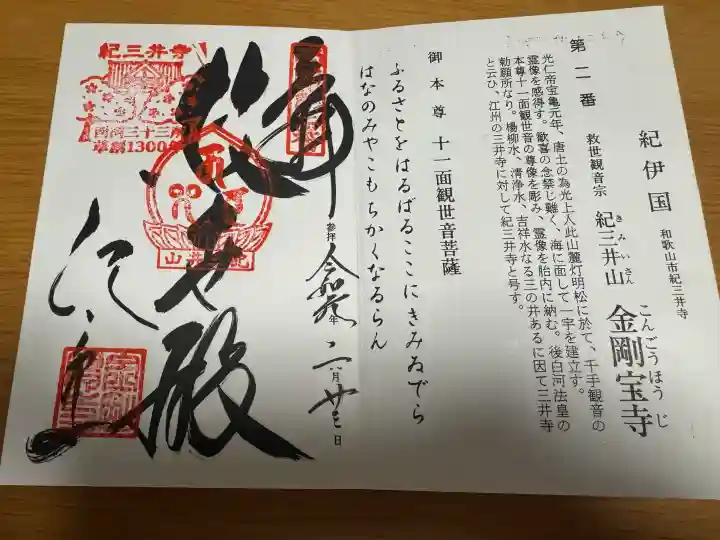 紀伊国
和歌山市紀三井寺
第二番
救世観音宗
紀三井山
きみいさん
金剛宝寺
こんごうほうじ
光仁帝宝亀元年、唐土の為光上人此山麓灯明松に於て、千手観音の
霊像を感得す。歓喜の念禁じ難く、海に面して一宇を建立す。
本尊十一面観世音の尊像を彫み、霊像を胎内に納む。後白河法皇の
勅願所なり。楊柳水、清浄水、吉祥水なる三の井あるに因て三井寺
と云ひ、江州の三井寺に対して紀三井寺と号す。
御本尊
十一面観世音菩薩
ふるさとをはるばるここにきみゐでら
はなのみやこもちかくなるらん
参拝
令和
年
月
日
奉
救世殿
紀三井寺
西国三十三所
草創1300年